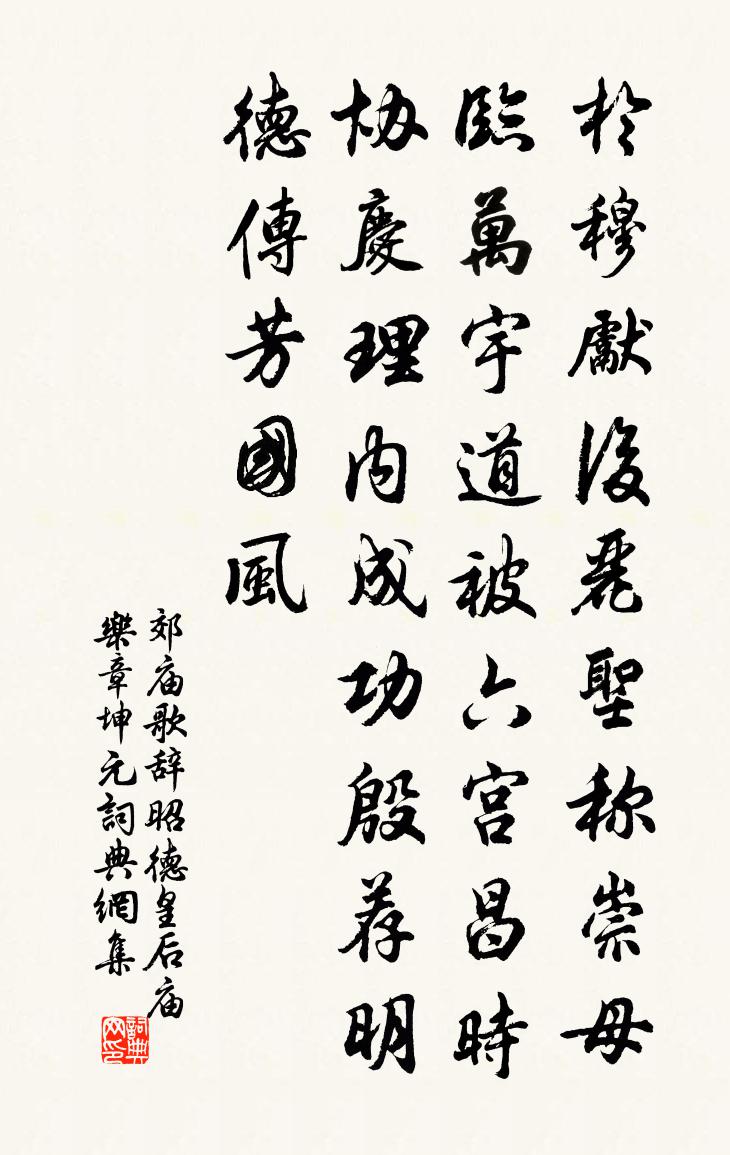 於穆獻後麗聖称崇母
臨萬宇道被六宫昌時
协慶理内成功殷荐明
德傳芳國風
郊庙歌辞昭德皇后庙
樂章坤元詞典網集
詞典网印